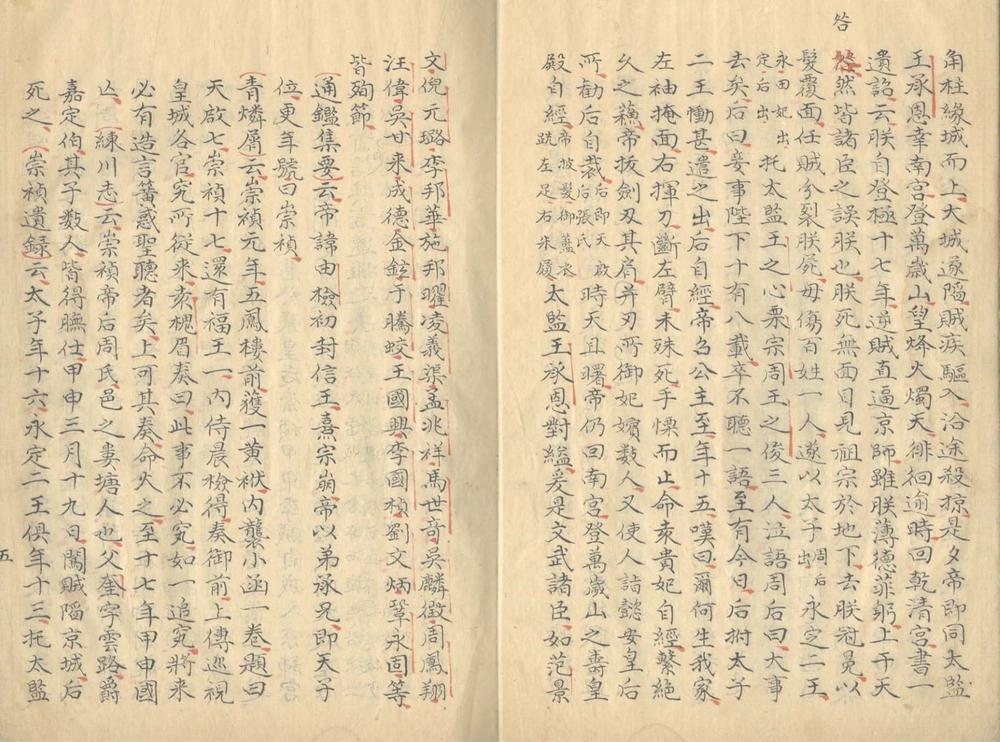 咎
角柱緣城而上大城遂陷賊疾驅入沿途殺掠是夕帝即同太監
王承恩幸南宮登萬歲山望烽火燭天徘徊逾時回乾清宮書一
遺詔云朕自登極十七年逆賊直逼京師雖朕薄德菲躬上干天
然皆諸臣之誤朕也朕死無面目見祖宗於地下去朕冠冕以
髮覆面任賊分裂朕屍毋傷百姓一人遂以太子周后出永定二王
永田妃出定后出托太監王之心栗宗周王之俊三人泣語周后曰大事
去矣后曰妾事陛下十有八載卒不聽一語至有今日后拊太子
二王慟甚遣之出后自經帝召公主至年十五嘆曰爾何生我家
左袖掩面右揮刀斷左臂未殊死手慄而止命袁貴妃自經繫絕
久之蘇帝拔劍刃其肩并刃所御妃嬪數人又使人詣懿安皇后
所勸后自裁后即天啟后張氏時天且曙帝仍回南宮登萬歲山之壽皇
殿自經帝披髮御藍衣跣左足右朱履太監王承恩對縊爰是文武諸臣如范景
文倪元璐李邦華施邦曜凌義渠孟兆祥馬世奇吳麟徵周鳳翔
汪偉吳甘來成德金鉉于騰蛟王國興李國楨劉文炳鞏永固等
皆殉節
通鑑集要云帝諱由檢初封信王熹宗崩帝以弟承兄即天子
位更年號曰崇禎
青燐屑云崇禎元年五鳳樓前獲一黃袱內襲小函一卷題曰
天啟七崇禎十七還有福王一內侍晨檢得奏御前上傳巡視
皇城各官究所從來袁槐眉奏曰此事不必究如一追究將來
必有造言簧惑聖聽者矣上可其奏命火之至十七年甲申國
亾練川志云崇禎帝后周氏邑之妻塘人也父奎字雲路爵
嘉定伯其子數人皆得膴仕甲申三月十九日闖賊陷京城后
死之崇禎遺錄云太子年十六永定二王俱年十三托太監
五